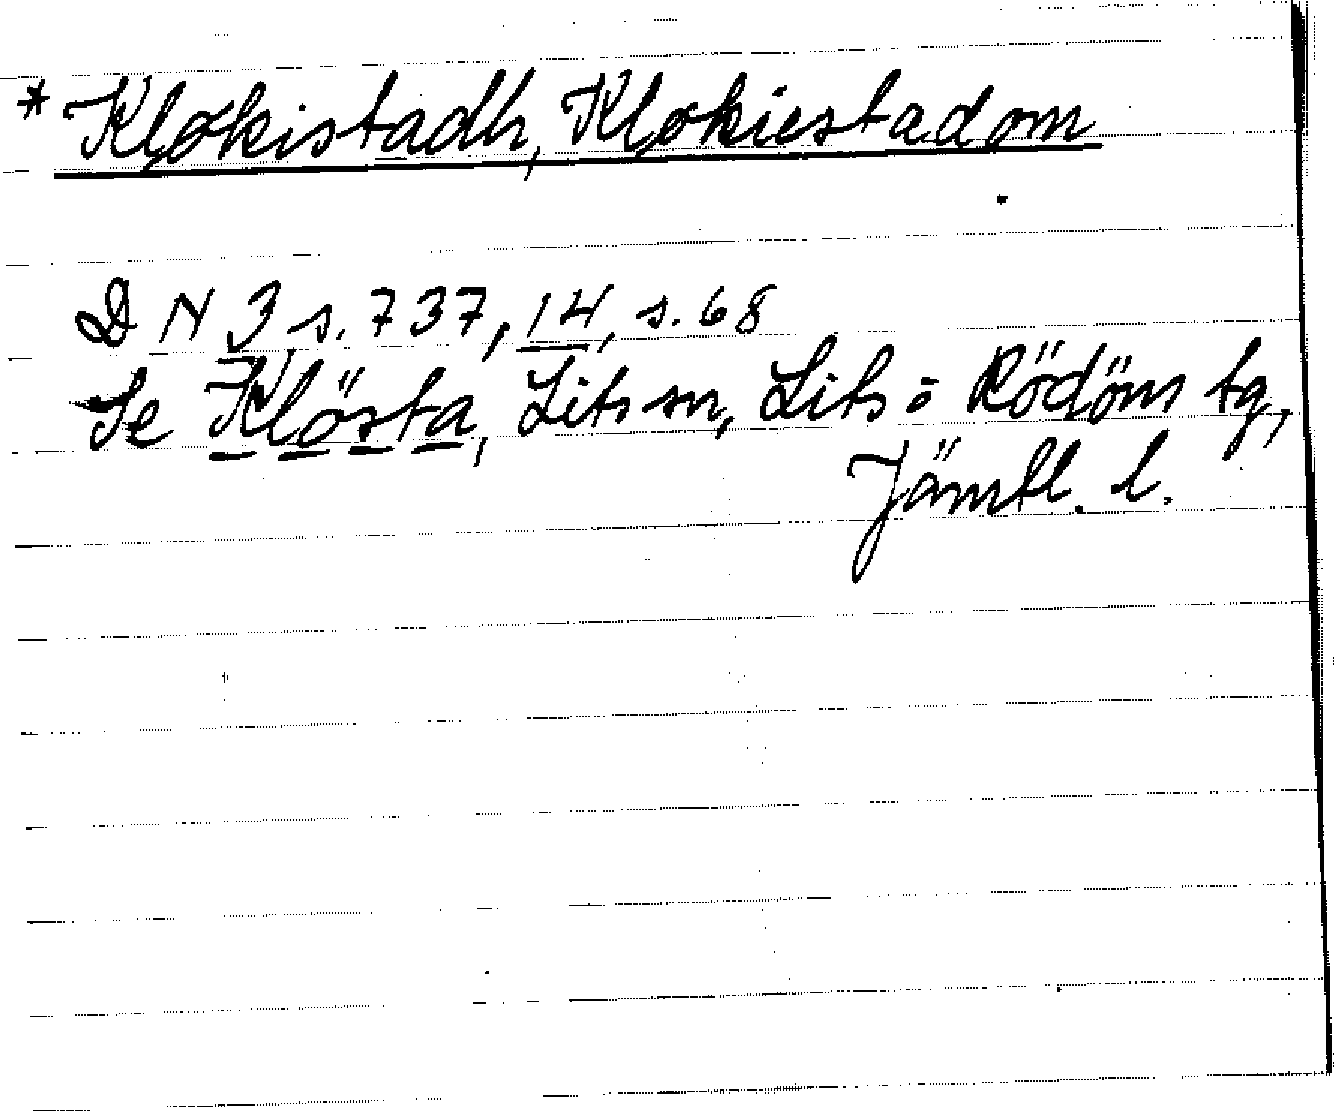 * Kløkistadh, Kløkiestadom
D N 3 s. 737, 14, s. 68
Se Klösta, Lits sn, Lits o Rödöns tg,
Jämtl. l.